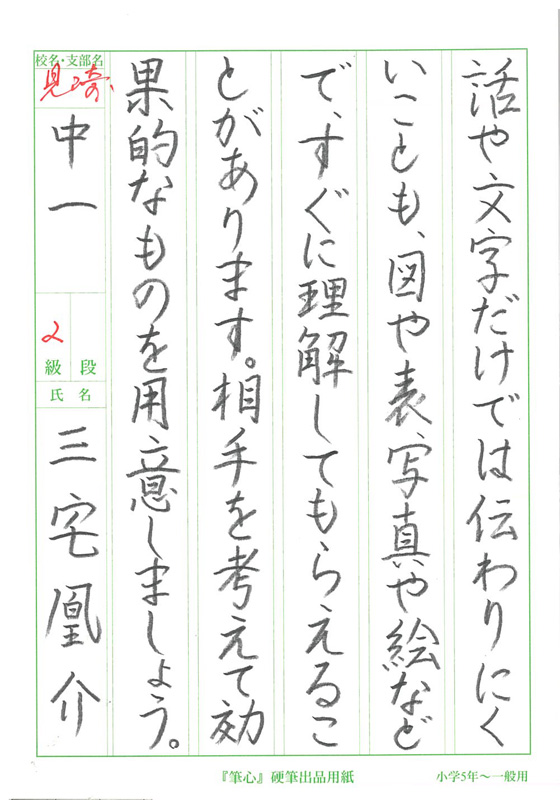 話や文字だけでは伝わりにく
いことも、図や表、写真や絵など
で、すぐに理解してもらえるこ
とがあります。相手を考えて効
果的なものを用意しましょう。
校名・支部名
見崎
中一
2
級 段
氏 名
三宅凰介
『筆心』硬筆出品用紙
小学5年〜一般用